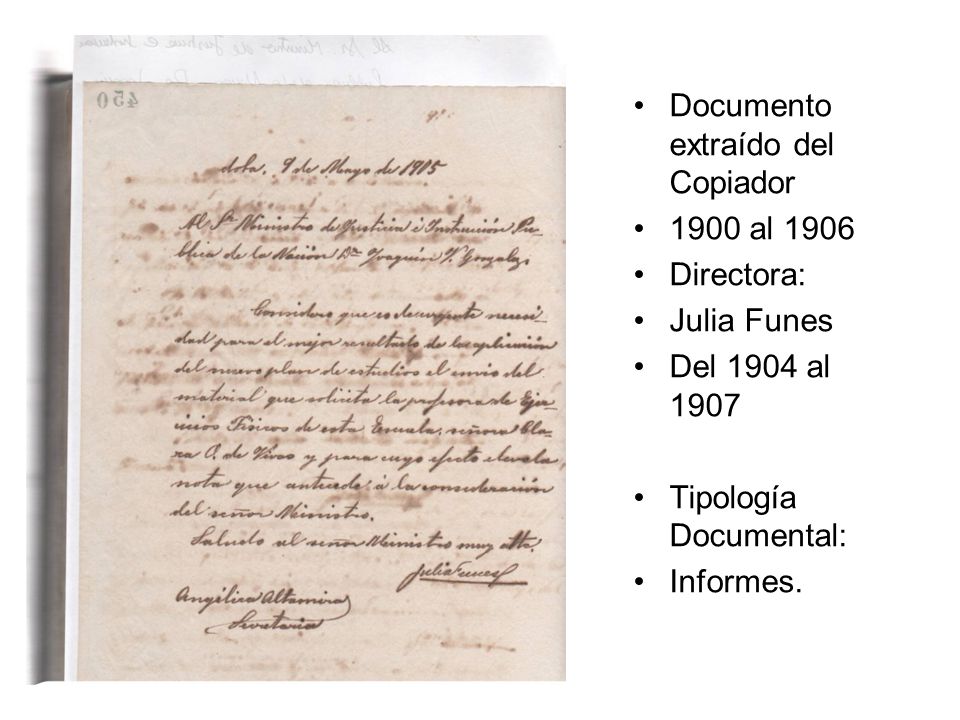 450
doba, 9 de Mayo de 1905
Al Sr Ministro de Justicia é Instrución Pú-
blica de la Nación Dn Joaquin V. Gonzalez,
Considero que es de urgente necesi-
dad para el mejor resultado de la aplicación
del nuevo plan de estudios el envio del
material que solicita la profesora de Ejer-
cicios Físicos de esta Escuela, señora Cla-
ra O. de Vivas y para cuyo efecto eleva la
nota que antecede á la consideración
del señor Ministro.
Saludo al señor Ministro muy atte.
Julia Funes
Angélica Altamira
Secretaria
• Documento
extraído del
Copiador
• 1900 al 1906
• Directora:
• Julia Funes
• Del 1904 al
1907
• Tipología
Documental:
• Informes.